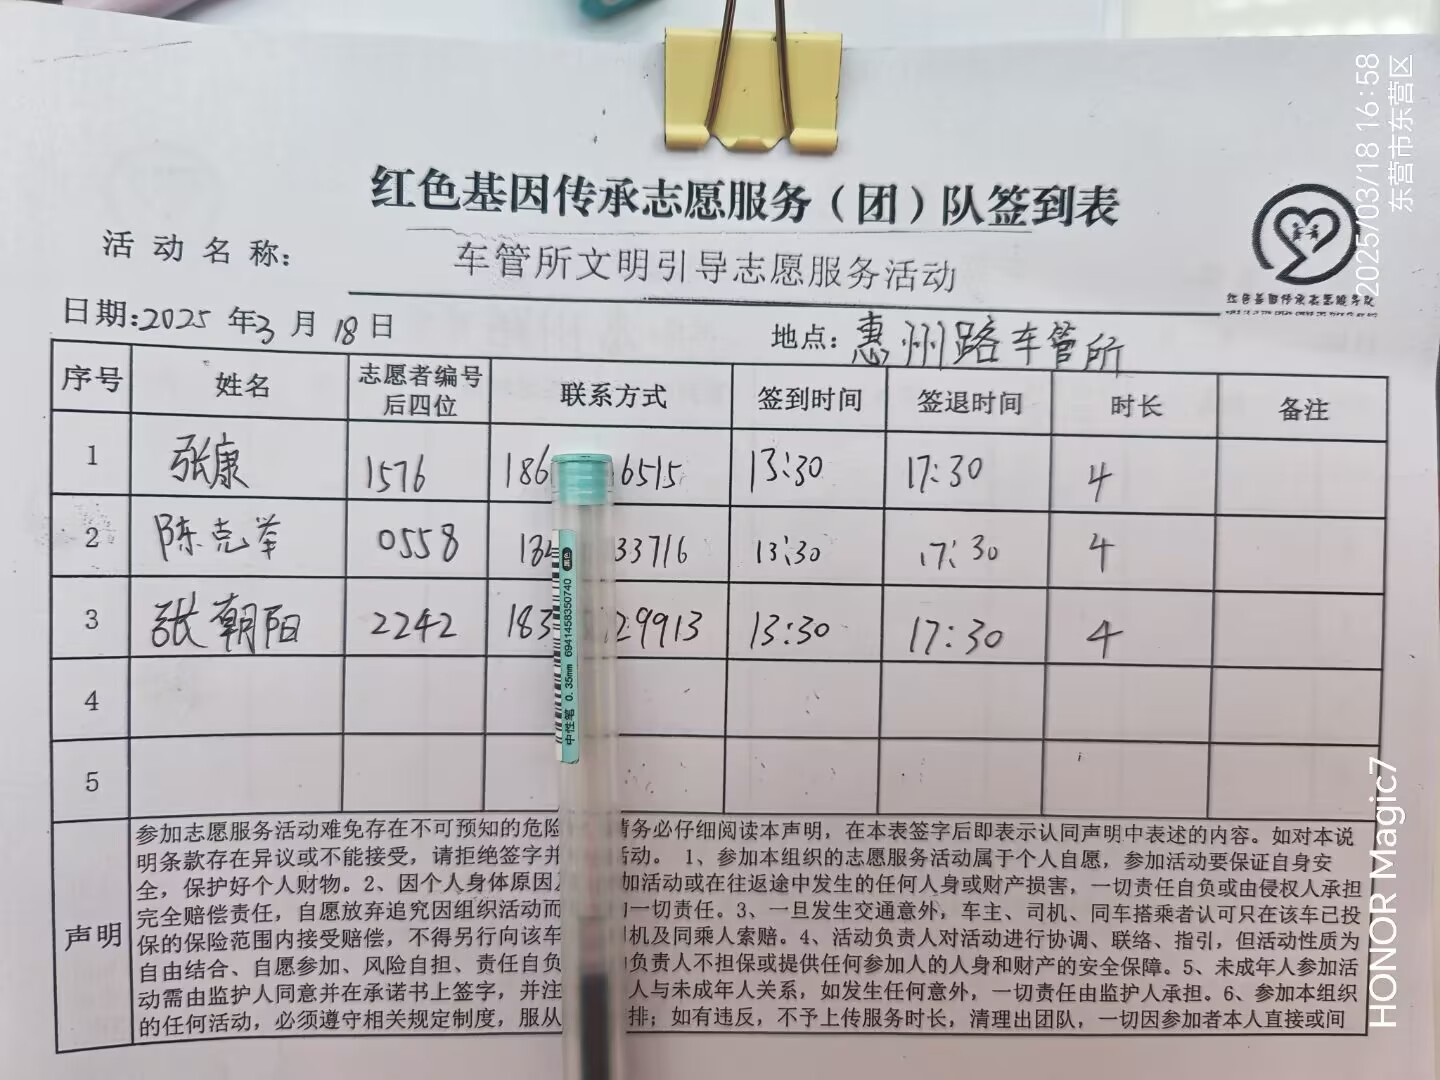 红色基因传承志愿服务（团）队签到表
活动名称： 车管所文明引导志愿服务活动
红色基因传承志愿服务队
日期:2025年3月18日 地点：惠州路车管所
序号 姓名 志愿者编号后四位 联系方式 签到时间 签退时间 时长 备注
1 张康 1576 186 6515 13:30 17:30 4
2 陈克举 0558 134 33716 13:30 17:30 4
3 张朝阳 2242 183 29913 13:30 17:30 4
4
5
声明
参加志愿服务活动难免存在不可预知的危险 请务必仔细阅读本声明，在本表签字后即表示认同声明中表述的内容。如对本说
明条款存在异议或不能接受，请拒绝签字并 活动。 1、参加本组织的志愿服务活动属于个人自愿，参加活动要保证自身安
全，保护好个人财物。2、因个人身体原因 加活动或在往返途中发生的任何人身或财产损害，一切责任自负或由侵权人承担
完全赔偿责任，自愿放弃追究因组织活动而 一切责任。3、一旦发生交通意外，车主、司机、同车搭乘者认可只在该车已投
保的保险范围内接受赔偿，不得另行向该车 机及同乘人索赔。4、活动负责人对活动进行协调、联络、指引，但活动性质为
自由结合、自愿参加、风险自担、责任自负 负责人不担保或提供任何参加人的人身和财产的安全保障。5、未成年人参加活
动需由监护人同意并在承诺书上签字，并注 人与未成年人关系，如发生任何意外，一切责任由监护人承担。6、参加本组织
的任何活动，必须遵守相关规定制度，服从 排；如有违反，不予上传服务时长，清理出团队，一切因参加者本人直接或间
中性笔 0.35mm 6941458350740 黑色
2025/03/18 16:58
东营市东营区
HONOR Magic7